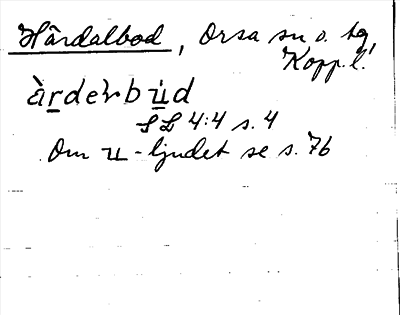 Hårdalbod, Orsa sn o. tg,
Kopp.l.
àrdeɫbu̇d
SL 4:4 s. 4
Om u-ljudet se s. 76